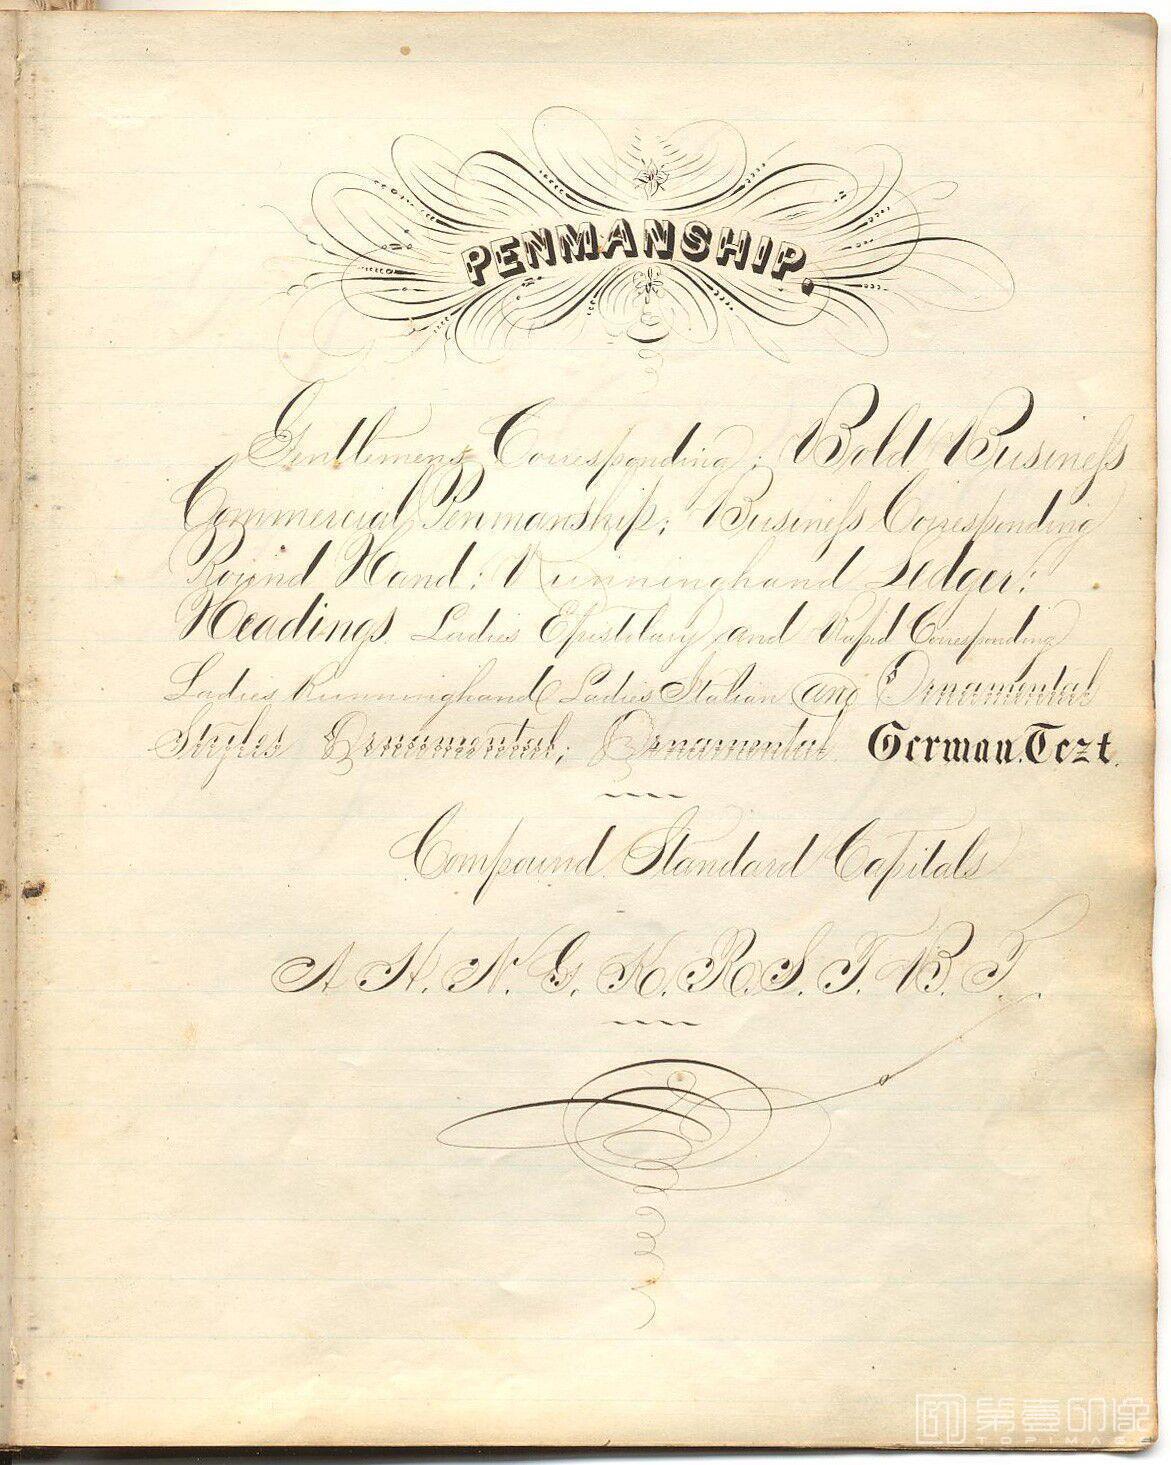 PENMANSHIP.
Gentlemens Corresponding; Bold Business
Commercial Penmanship; Business Corresponding
Round Hand; Runninghand Ledger;
Headings. Ladies Epistilary and Rapid Corresponding
Ladies Runninghand Ladies Italian and Ornamental
Styles Ornamental; Ornamental. German. Text.
Compound Standard Capitals
A H. N. G. K. R. S. T. B. T.
第壹印像
TOPIMAGE